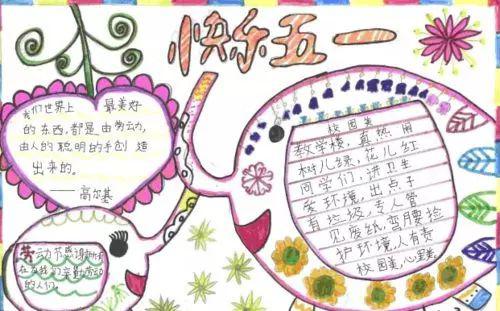 快乐五一
我们世界上 最美好
的东西,都是由劳动,
由人的聪明的手创造
出来的。
——高尔基
校园美
教学楼,真热闹
树儿绿,花儿红
同学们,讲卫生
爱环境,出点子
有垃圾,专人管
见废纸,弯腰捡
护环境,人有责
校园美,心里美
劳动节感谢
在为我们辛勤劳动
的人们。